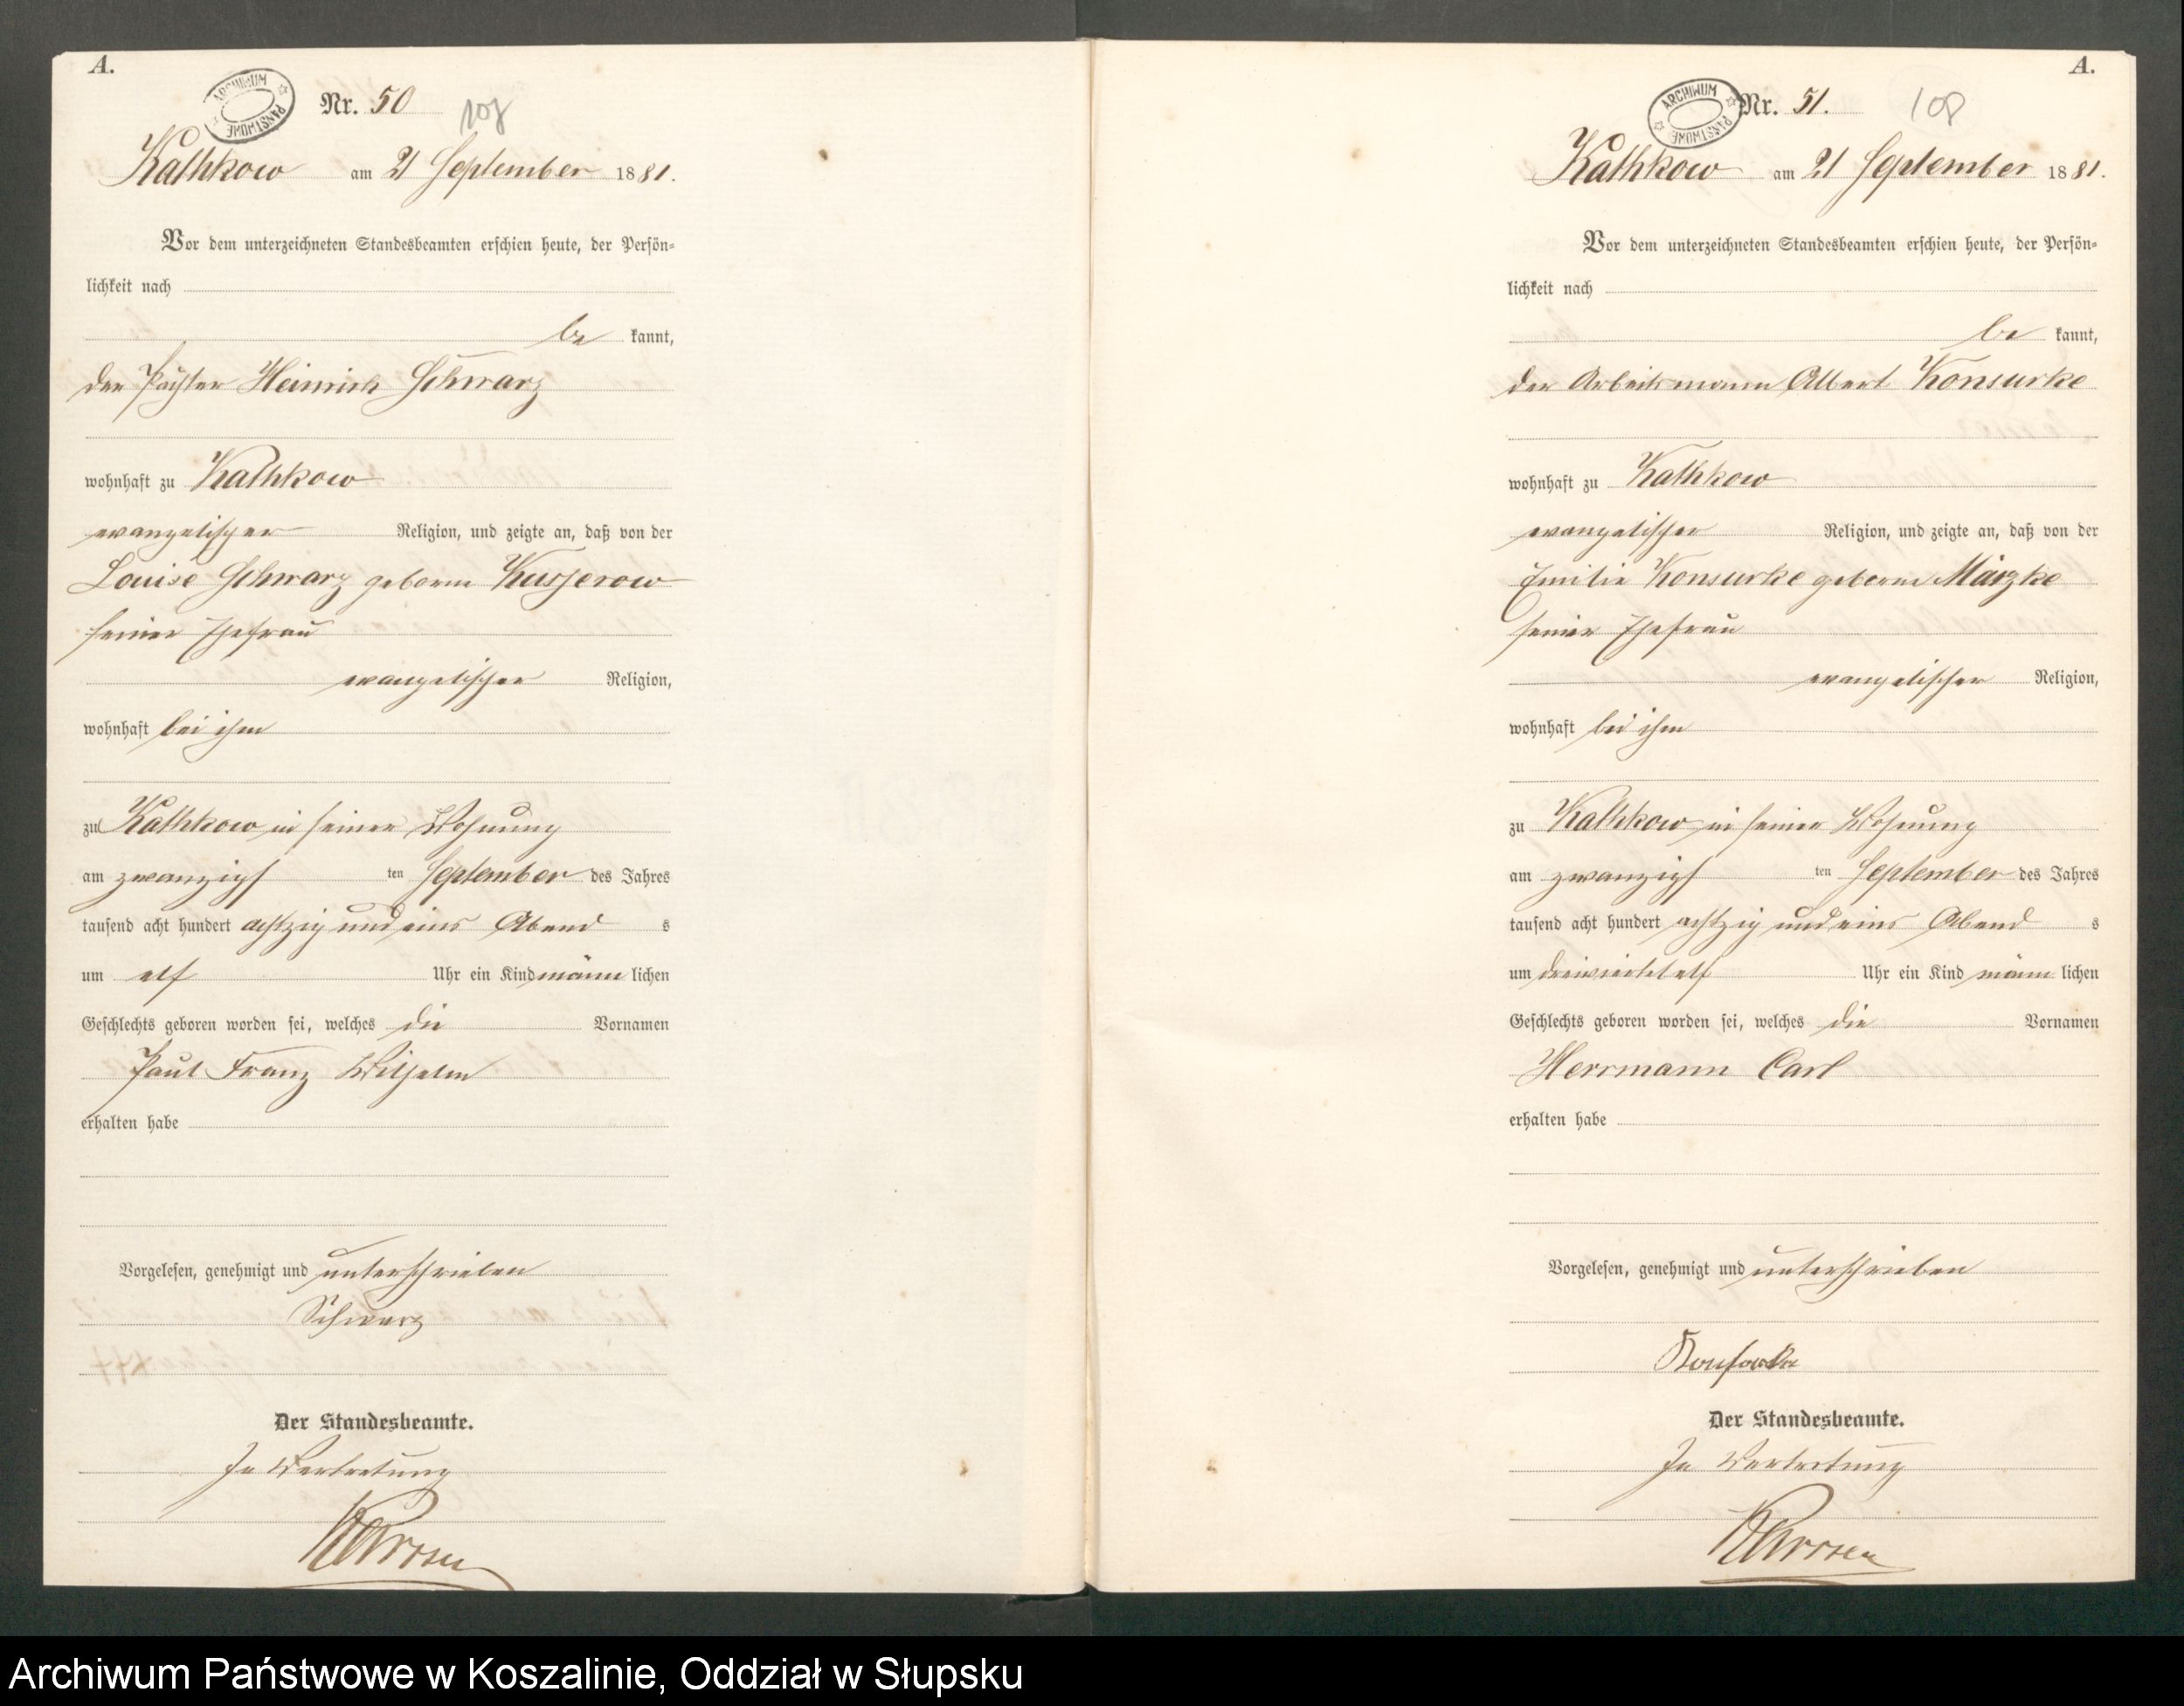 A.
ARCHIWUM PAŃSTWOWE
Nr. 50
107
Kathkow am 21 September 1881.
Vor dem unterzeichneten Standesbeamten erschien heute, der Persön=
lichkeit nach
be kannt,
der Pächter Heinrich Schwarz
wohnhaft zu Kathkow
evangelischer Religion, und zeigte an, daß von der
Louise Schwarz geborne Kusserow
seiner Ehefrau
evangelischer Religion,
wohnhaft bei ihm
zu Kathkow in seiner Wohnung
am zwanzigs ten September des Jahres
tausend acht hundert achtzig und eins Abend s
um elf Uhr ein Kind männ lichen
Geschlechts geboren worden sei, welches die Vornamen
Paul Franz Wilhelm
erhalten habe
Vorgelesen, genehmigt und unterschrieben
Schwarz
Der Standesbeamte.
In Vertretung
A.
ARCHIWUM PAŃSTWOWE
Nr. 51.
108
Kathkow am 21 September 1881.
Vor dem unterzeichneten Standesbeamten erschien heute, der Persön=
lichkeit nach
be kannt,
der Arbeitsmann Albert Konsurke
wohnhaft zu Kathkow
evangelischer Religion, und zeigte an, daß von der
Emilie Konsurke geborne Märzke
seiner Ehefrau
evangelischer Religion,
wohnhaft bei ihm
zu Kathkow in seiner Wohnung
am zwanzigs ten September des Jahres
tausend acht hundert achtzig und eins Abend s
um dreiviertel elf Uhr ein Kind männ lichen
Geschlechts geboren worden sei, welches die Vornamen
Herrmann Carl
erhalten habe
Vorgelesen, genehmigt und unterschrieben
Der Standesbeamte.
In Vertretung
Archiwum Państwowe w Koszalinie, Oddział w Słupsku